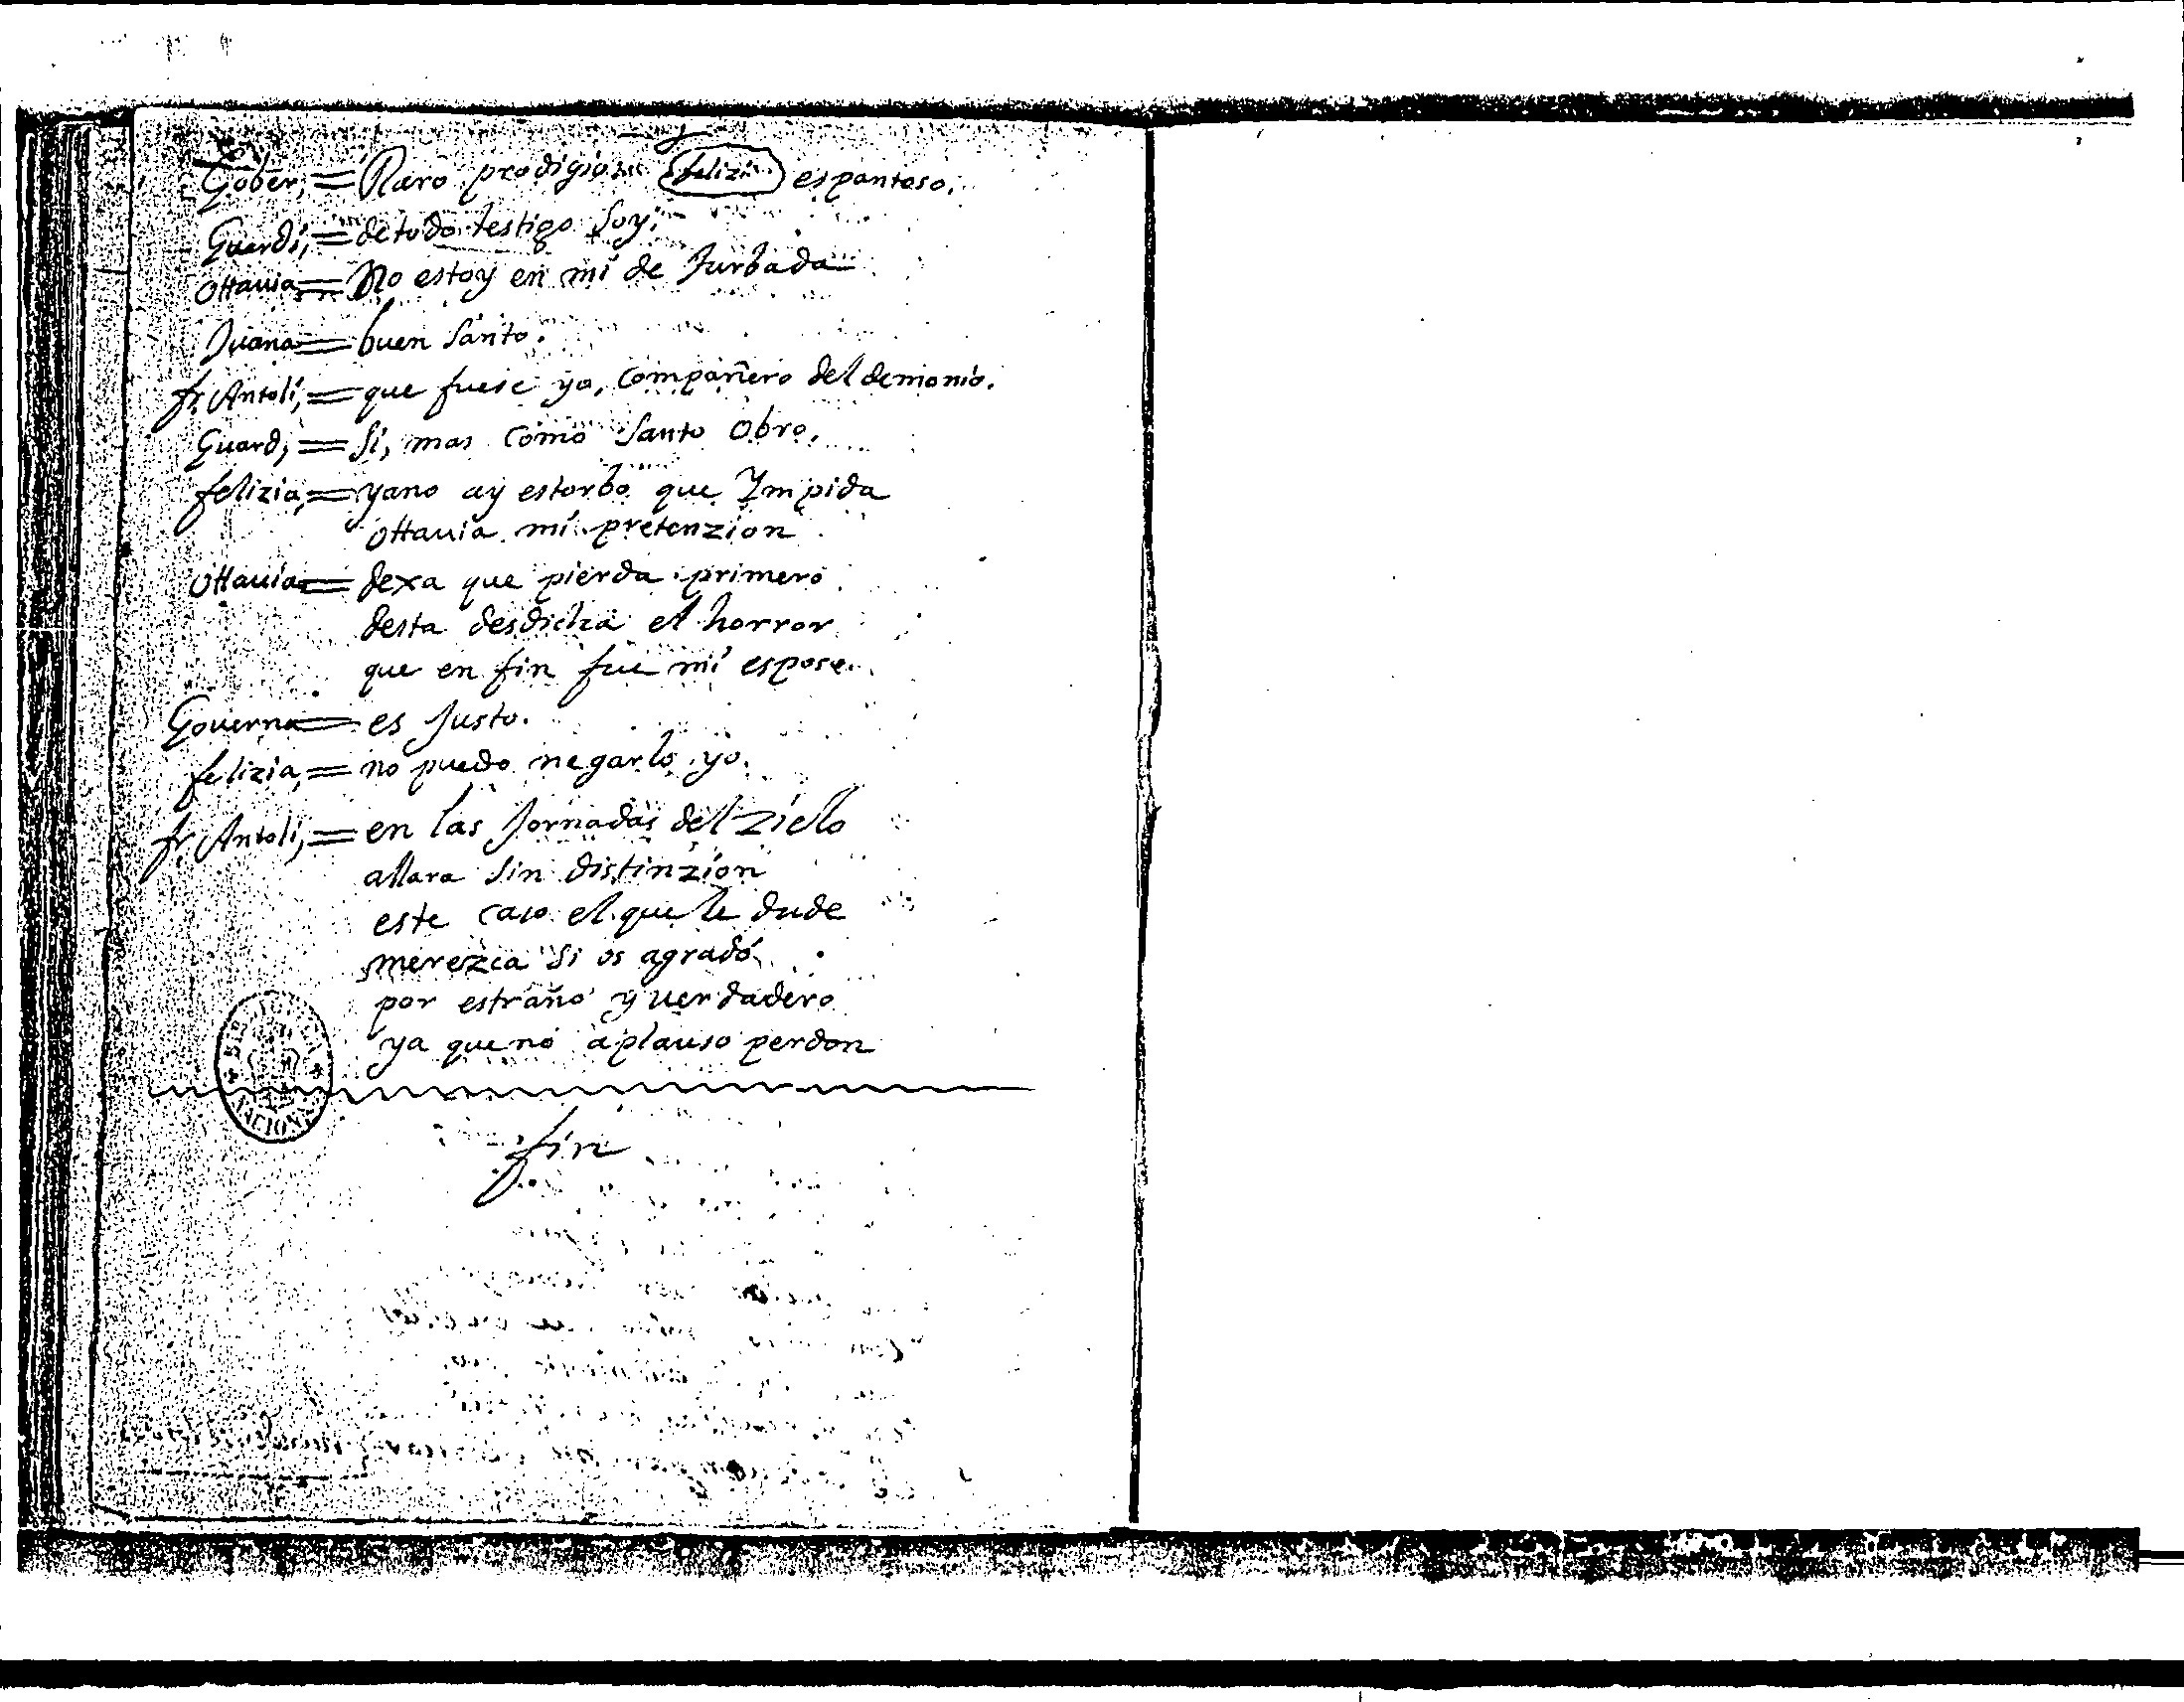 Gober, = Raro prodigio = felizi espantoso.
Guardi, = de todo testigo soy.
Ottauia = No estoy en mi de turbada
Juana = buen santo.
fr Antoli, = que fuese yo, compañero del demonio.
Guard, = si, mas como santo obro,
felizia, = yano ay estorbo que Ympida
ottauia mi pretenzion
Ottauia = dexa que pierda primero
desta desdicha el horror
que en fin fue mi esposo.
Gouerna = es Justo.
felizia, = no puedo negarlo yo.
fr Antoli, = en las Jornadas del zielo
allara sin distinzion
este caso el que le dude
merezca si os agradó
por estraño y uerdadero
ya que no aplauso perdon
fin
BIBLIOTECA NACIONAL